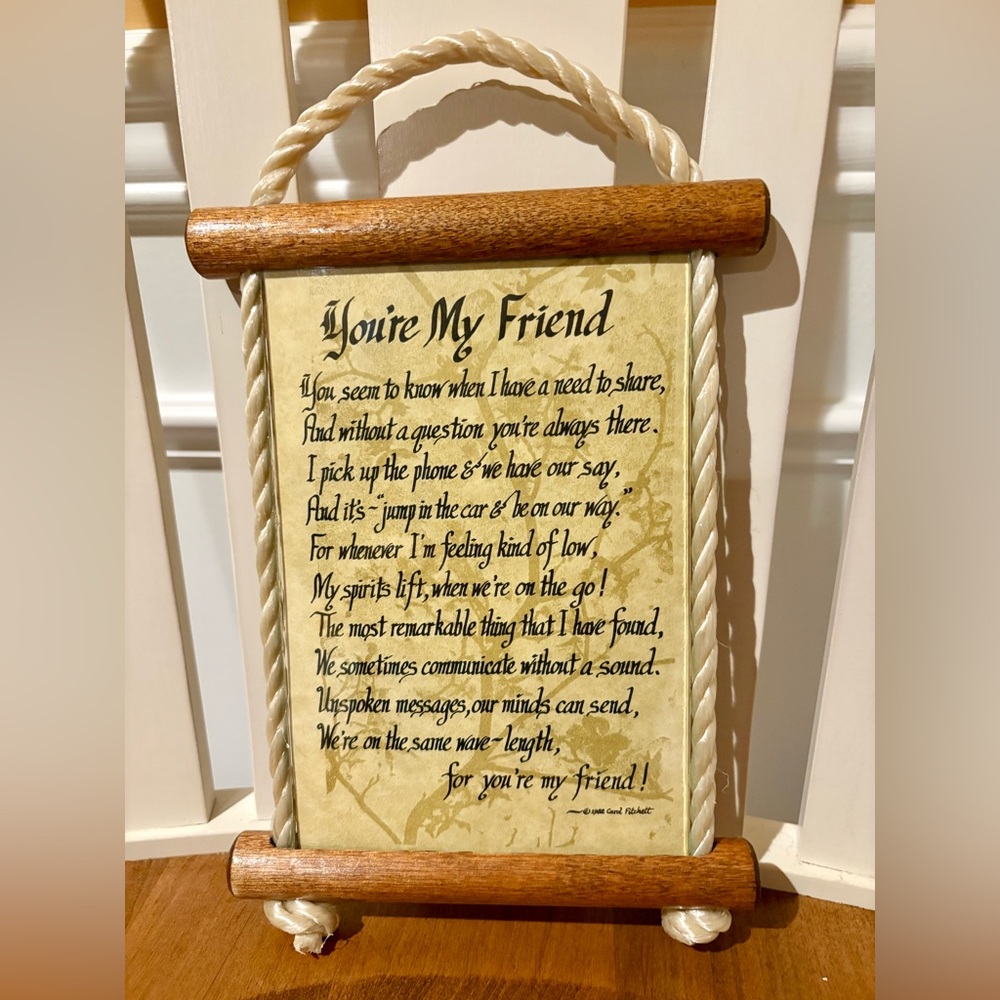 You're My Friend
You seem to know when I have a need to share,
And without a question you're always there.
I pick up the phone & we have our say,
And it's ~ "jump in the car & be on our way."
For whenever I'm feeling kind of low,
My spirits lift, when we're on the go!
The most remarkable thing that I have found,
We sometimes communicate without a sound.
Unspoken messages, our minds can send,
We're on the same wave~length,
for you're my friend!
© Carol Fitchett